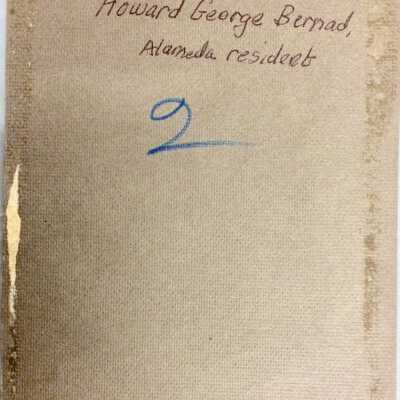 Howard George Bernad,
Alameda resident
2